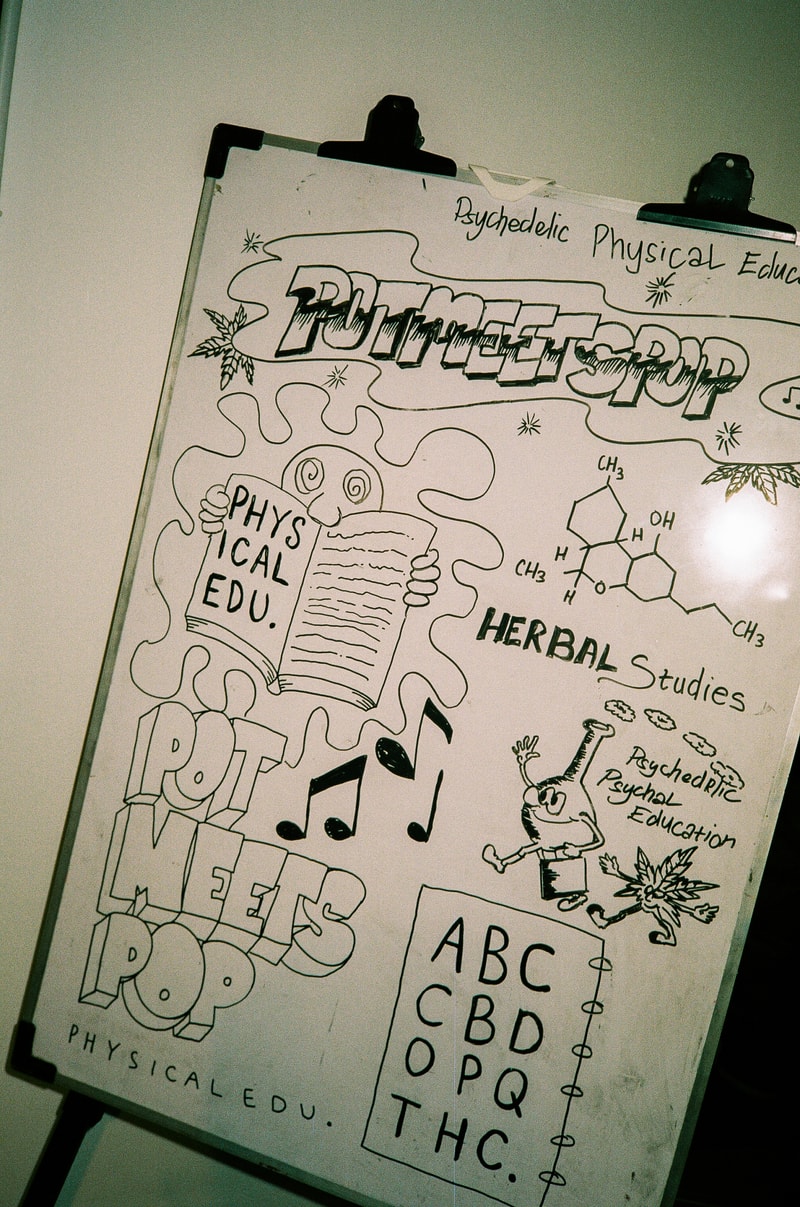 Psychedelic Physical Educa
POTMEETSPOP
PHYS
ICAL
EDU.
CH3
H
OH
H
CH3
H
O
CH3
HERBAL Studies
POT
MEETS
POP
PHYSICAL EDU.
Psychedelic
Psychal
Education
ABC
CBD
OPQ
THC.